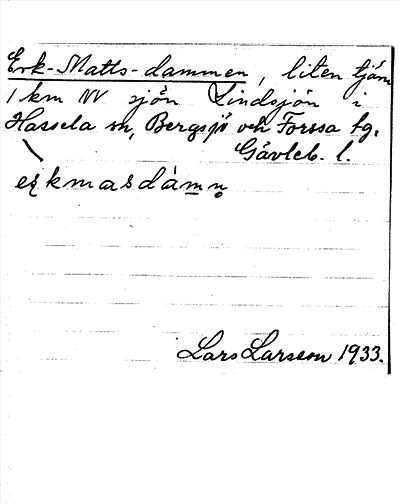 Erk-Matts-dammen, liten tjärn
1 km NV sjön Lindsjön i
Hassela sn, Bergsjö och Forssa tg.
Gävleb. l.
eṛkmasdàmn̥
Lars Larsson 1933.